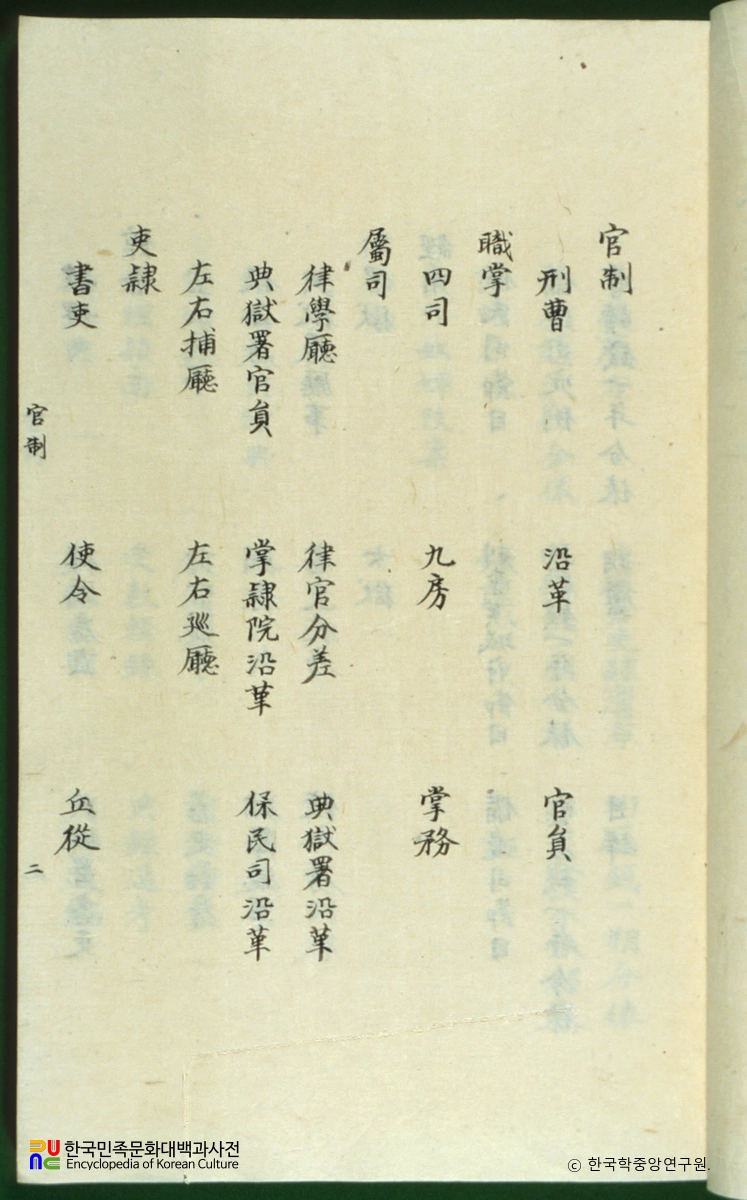 官制
刑曹 沿革 官員
職掌
四司 九房 掌務
屬司
律學廳 律官分差 典獄署沿革
典獄署官員 掌隷院沿革 保民司沿革
左右捕廳 左右廵廳
吏隷
書吏 使令 丘從
官制 二
한국민족문화대백과사전
Encyclopedia of Korean Culture
© 한국학중앙연구원.